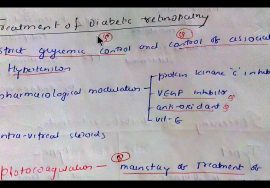 Treatment of Diabetic retinopathy
strict glycemic control and control of associa
Hypertension
pharmacological modulation - protein kinase 'C' inhib
VEGF inhibitor
anti-oxidant
vit-E
intra-vitreal steroids
photocoagulation - mainstay of treatment of